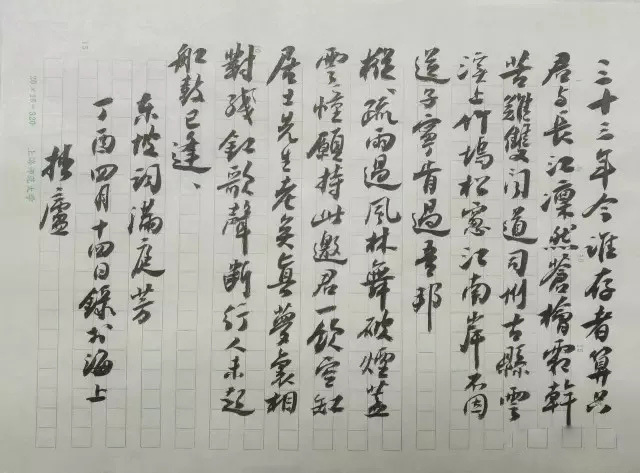 三十三年今誰存者算只
君与長江凜然蒼檜霜幹
苦難雙闻道司州古縣雲
溪上竹塢松窓江南岸不因
送子寧肯過吾邦
摐、疏雨過風林舞破煙蓋
雲幢願持此邀君一飲空缸
居士先生老矣真夢裏相
對殘釭歌聲斷行人未起
船鼓已逢、
东坡词滿庭芳
丁酉四月十四日録於海上
廬
上海师范大学
15